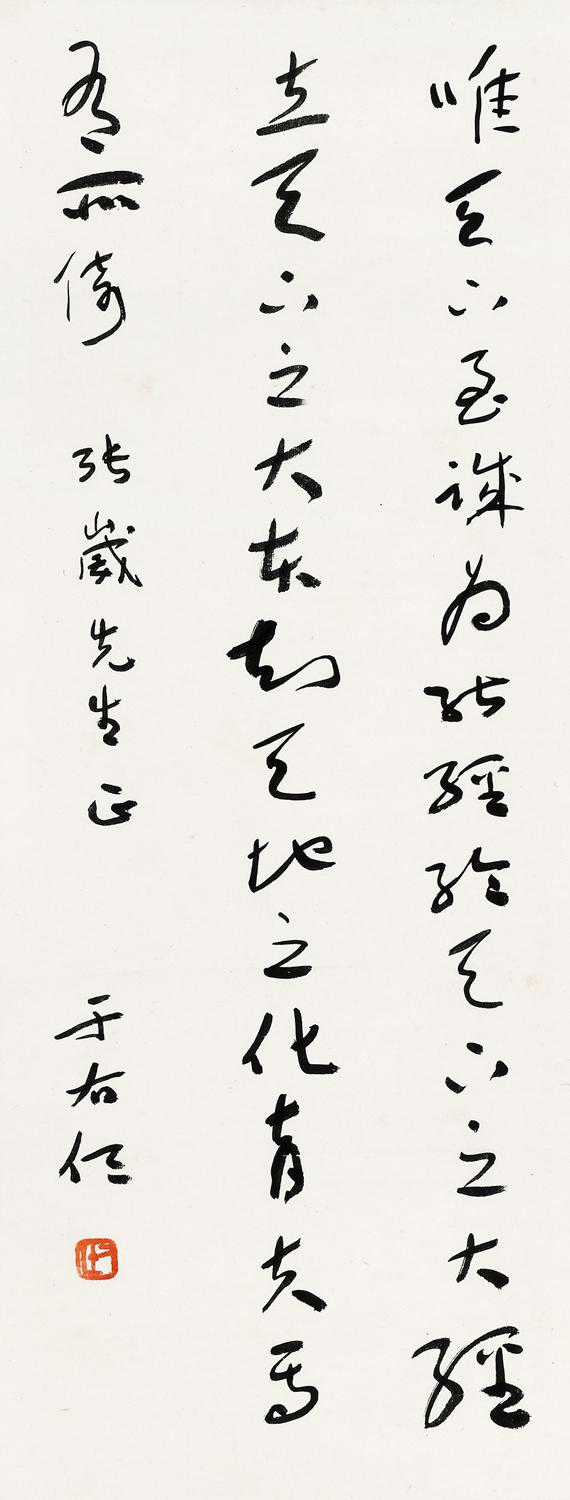 唯天下至誠為能經綸天下之大經
立天下之大本知天地之化育夫焉
有所倚
張嵗先生正
于右任